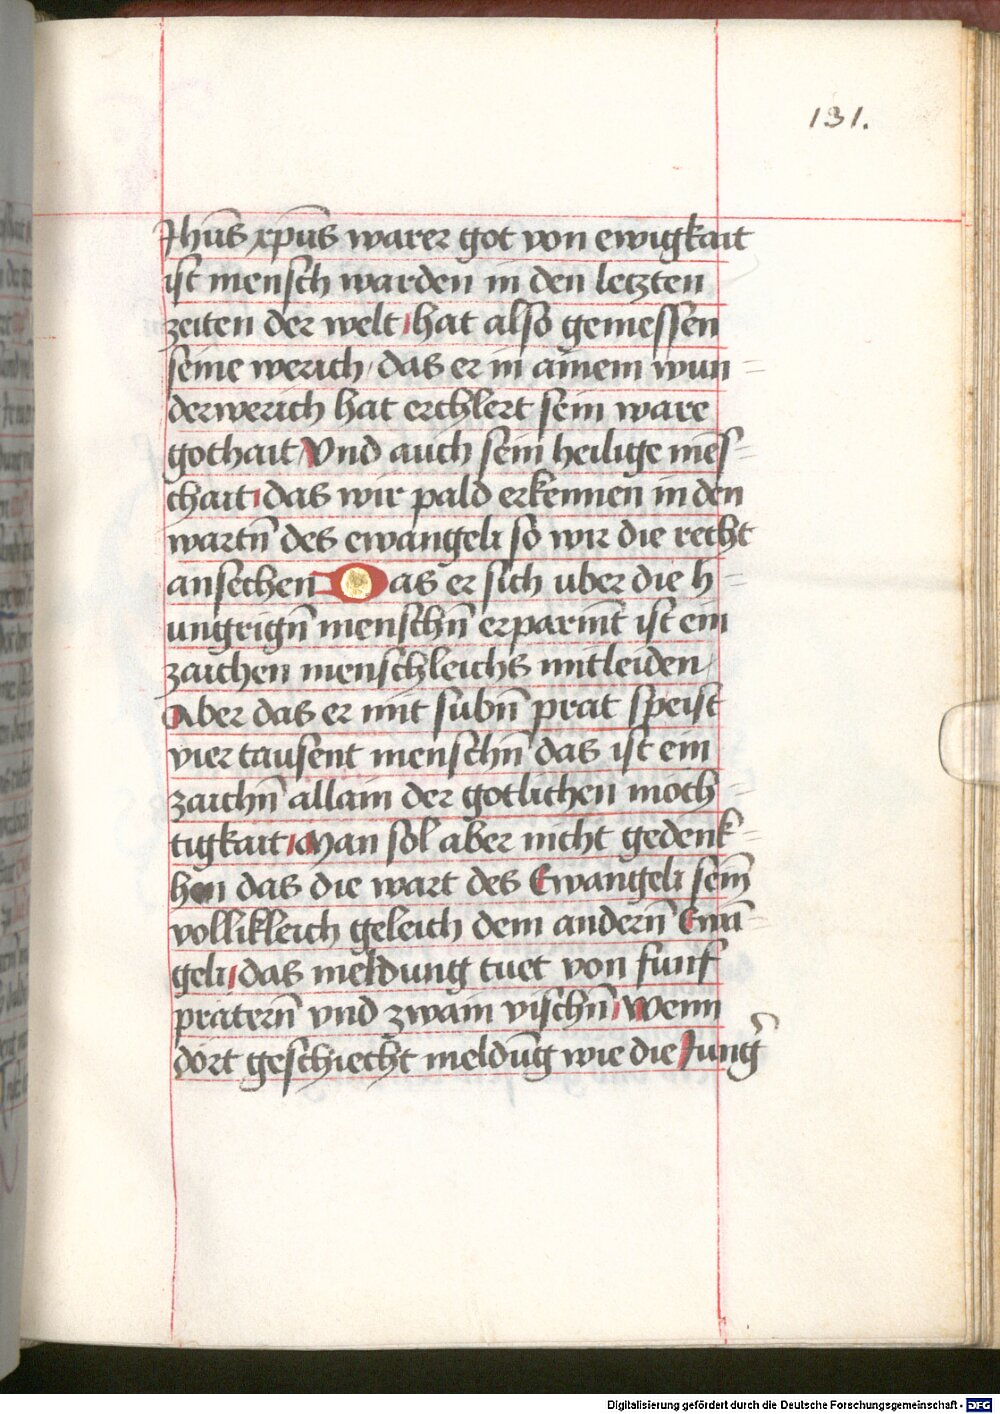 131.
Jhūs xpūs warer got von ewigkait
ist mensch warden in den letzten
zeiten der welt / hat also gemessen
seine werich / das er in ainem wun=
derwerich hat erchlert sein ware
gothait / Vnd auch sein heilige mēs=
chait / das wir pald erkennen in den
wartn̄ des ewangeli so wir die recht
ansechen Das er sich uber die h=
ungrign̄ menschn̄ erparmt̄ ist ein
zaichen menschleichs mitleiden /
Aber das er mit subn̄ prat speist
vier tausent menschn̄ das ist ein
zaichn̄ allain der gotlichen moch=
tigkait / Man sol aber nicht gedenk=
hen das die wart des Ewangeli sein̄
vollikleich geleich dem andern̄ Ewā=
geli / das meldung tuet von funf
pratern̄ vnd zwain vischn̄ / Wenn
dort geschiecht meldūg wie die Junḡ
Digitalisierung gefördert durch die Deutsche Forschungsgemeinschaft - DFG